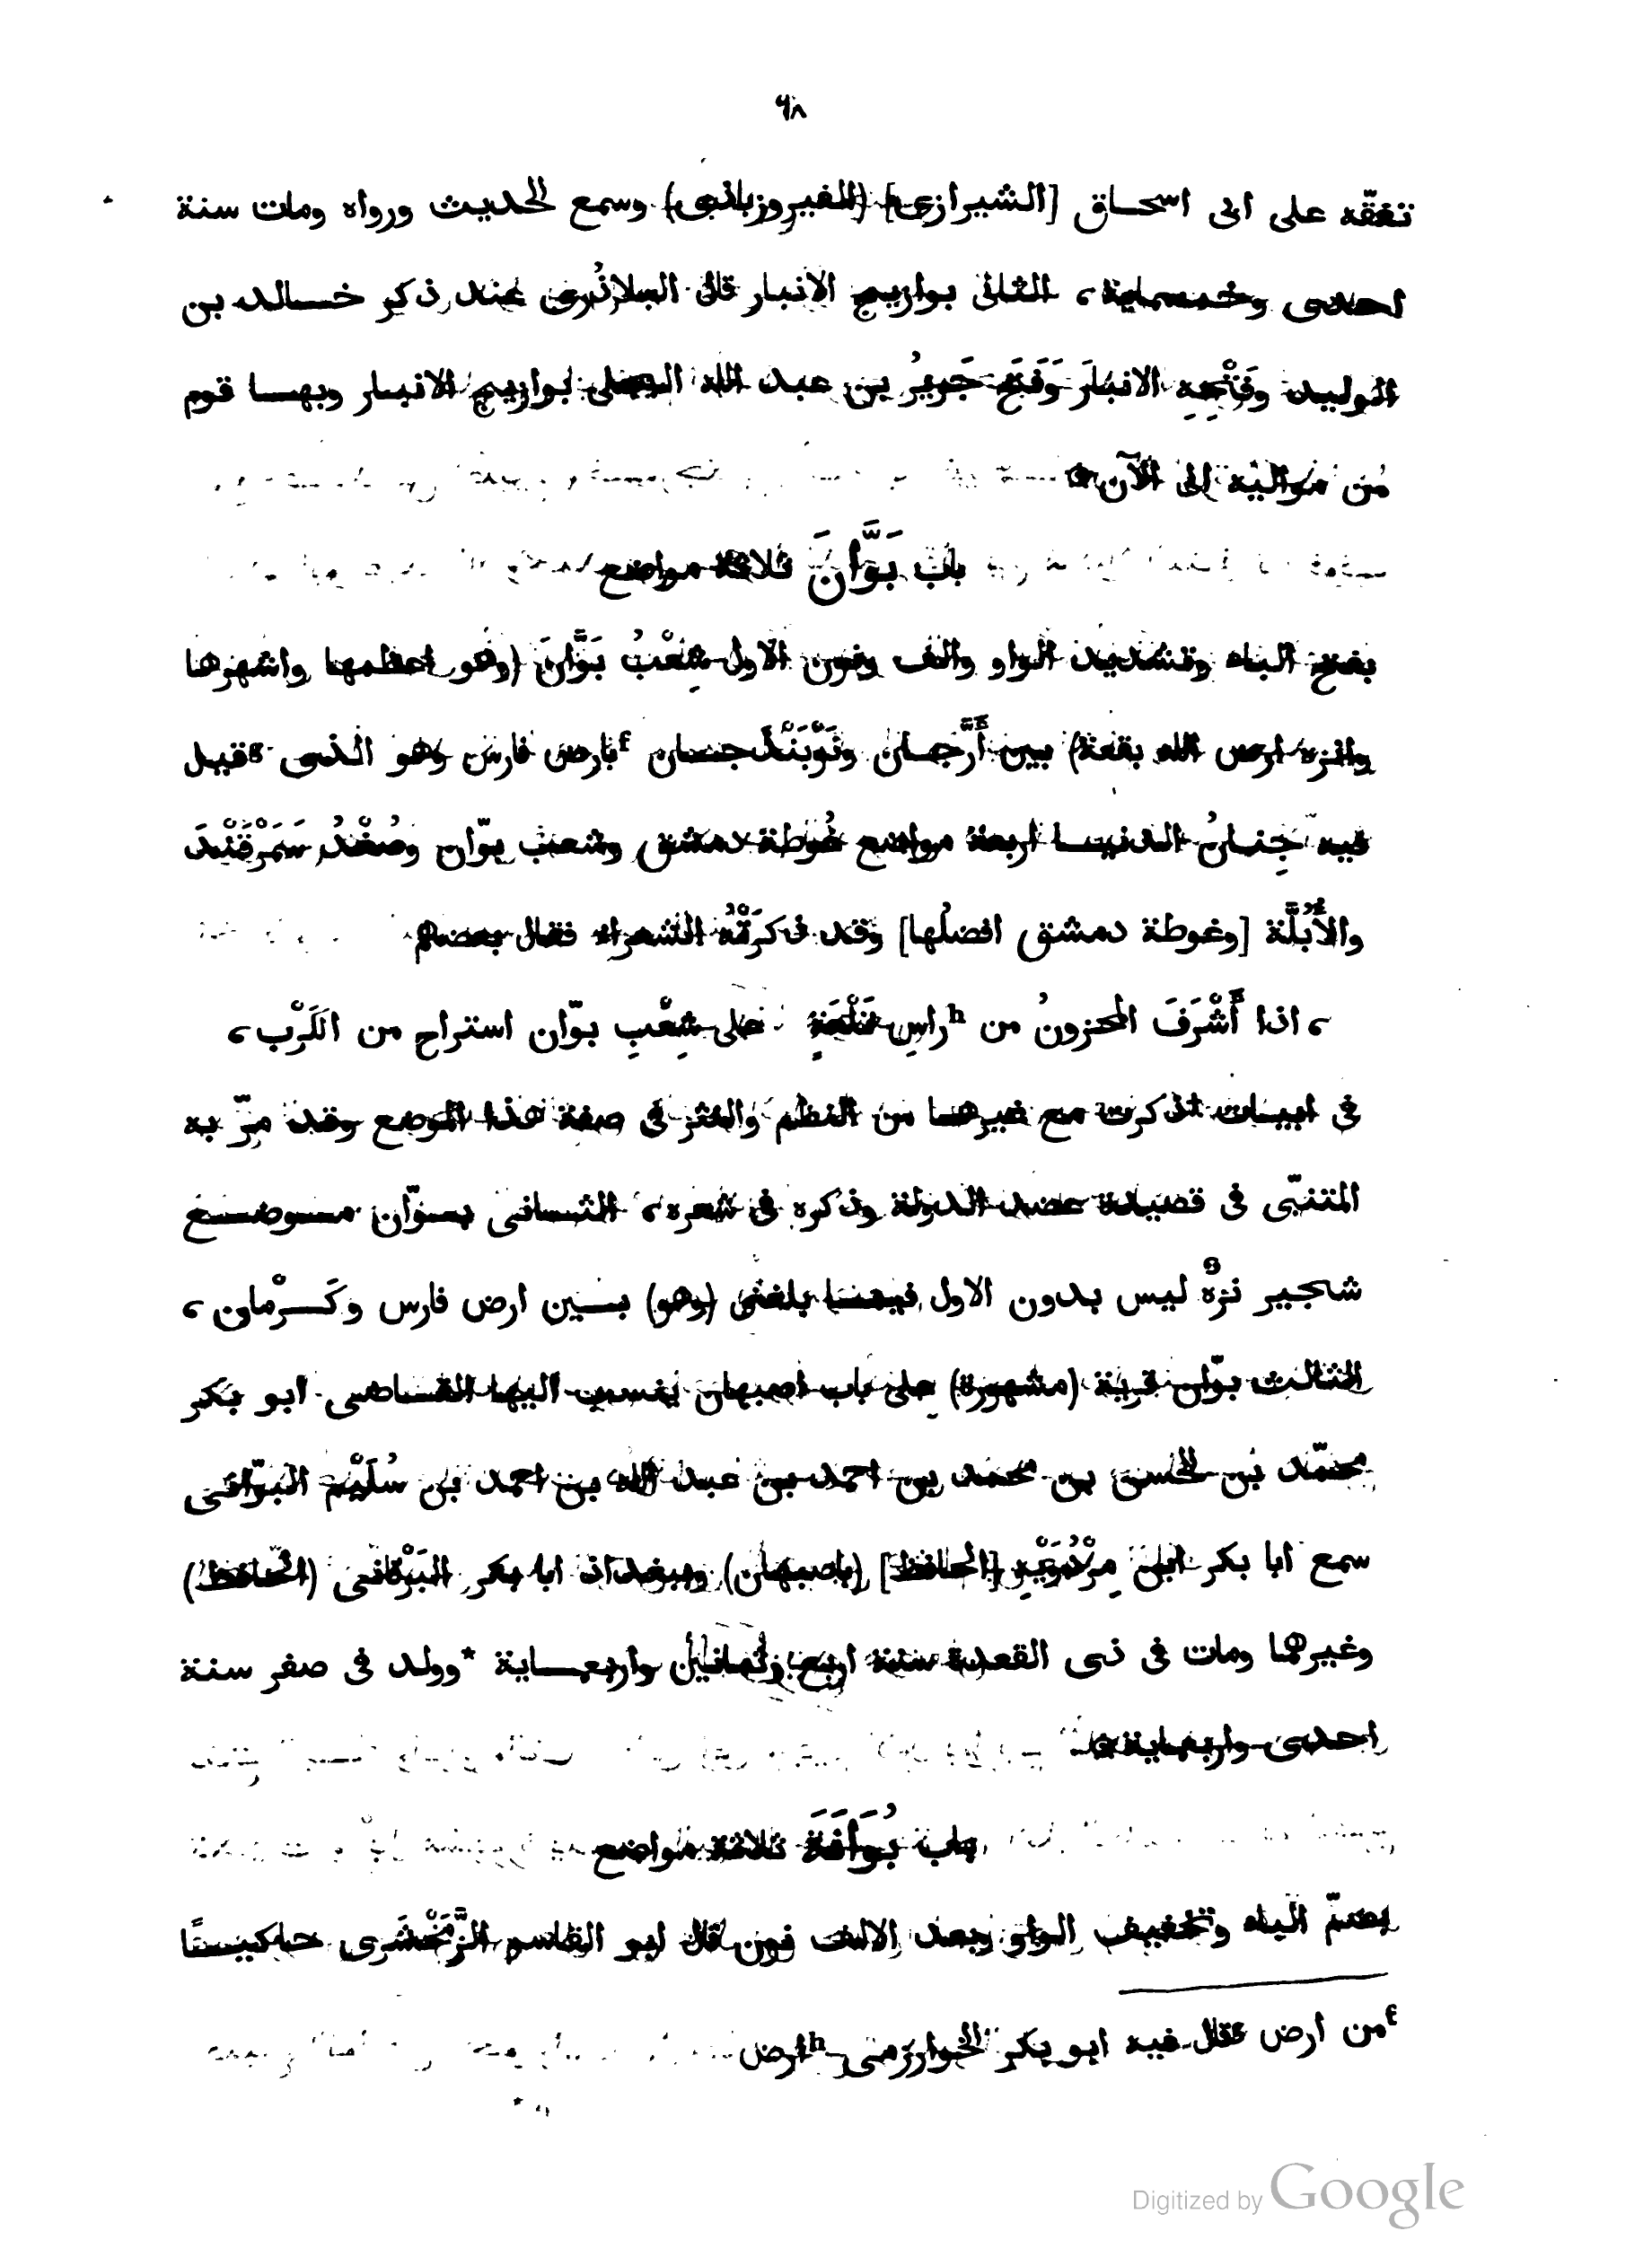 ٦٨
تفقّه على ابى اسحاق [الشيرازى] (الفيروزباذى) وسمع الحديث ورواه ومات سنة
احدى وخمسماية، الثانى بوازيج الانبار قال البلاذُرى عند ذكر خالد بن
الوليد وفَتْحِهِ الانبارَ وَفَتَحَ جَريرُ بن عبد الله البجلى بوازيج الانبار وبها قوم
من مواليه الى الآن
باب بَوَّانَ ثلاثة مواضع
بفتح الباء وتشديد الواو والف ونون الاول شِعْبُ بَوَّانَ (وهو اعظمها واشهرها
وانزه ارض الله بقعة) بين أَرَّجان ونَوْبَنْدَجان f بارض فارس وهو الذى g قيل
فيه جِنانُ الدنيا اربعة مواضع غُوطة دمشق وشعب بوّان وصُغْدُ سَمَرْقَنْدَ
والأُبُلَّة [وغوطة دمشق افضلُها] وقد ذكرَتْهُ الشعراء فقال بعضهم
، اذا أَشْرَفَ المحزونُ من h راسِ تَلْعَةٍ على شِعْبِ بوّان استراح من الكَرْب،
فى ابيات ذكرت مع غيرها من النظم والنثر فى صفة هذا الموضع وقد مرّ به
المتنبّى فى قصيدة عضد الدولة وذكره فى شعره، الثانى بوّان موضع
شجير نزهْ ليس بدون الاول فيما بلغنى (وهو) بين ارض فارس وكَرْمان،
الثالث بوّان قرية (مشهورة) على باب اصبهان ينسب اليها القاضى ابو بكر
محمّد بن الحسن بن محمد بن احمد بن عبد الله بن احمد بن سُلَيْم البوّانى
سمع ابا بكر ابن مِرْدُوَيْهِ [الحافظ] (باصبهان) وببغداذ ابا بكر البَرْقانى (الحافظ)
وغيرهما ومات فى ذى القعدة سنة اربع وثمانين واربعماية *وولد فى صفر سنة
احدى واربعماية
باب بُوَانَةَ ثلاثة مواضع
بضمّ الباء وتخفيف الواو وبعد الالف نون قال ابو القاسم الزَّمَخْشَرى حاكيًا
f من ارض g قال فيه ابو بكر الخوارزمى h ارض
Digitized by Google